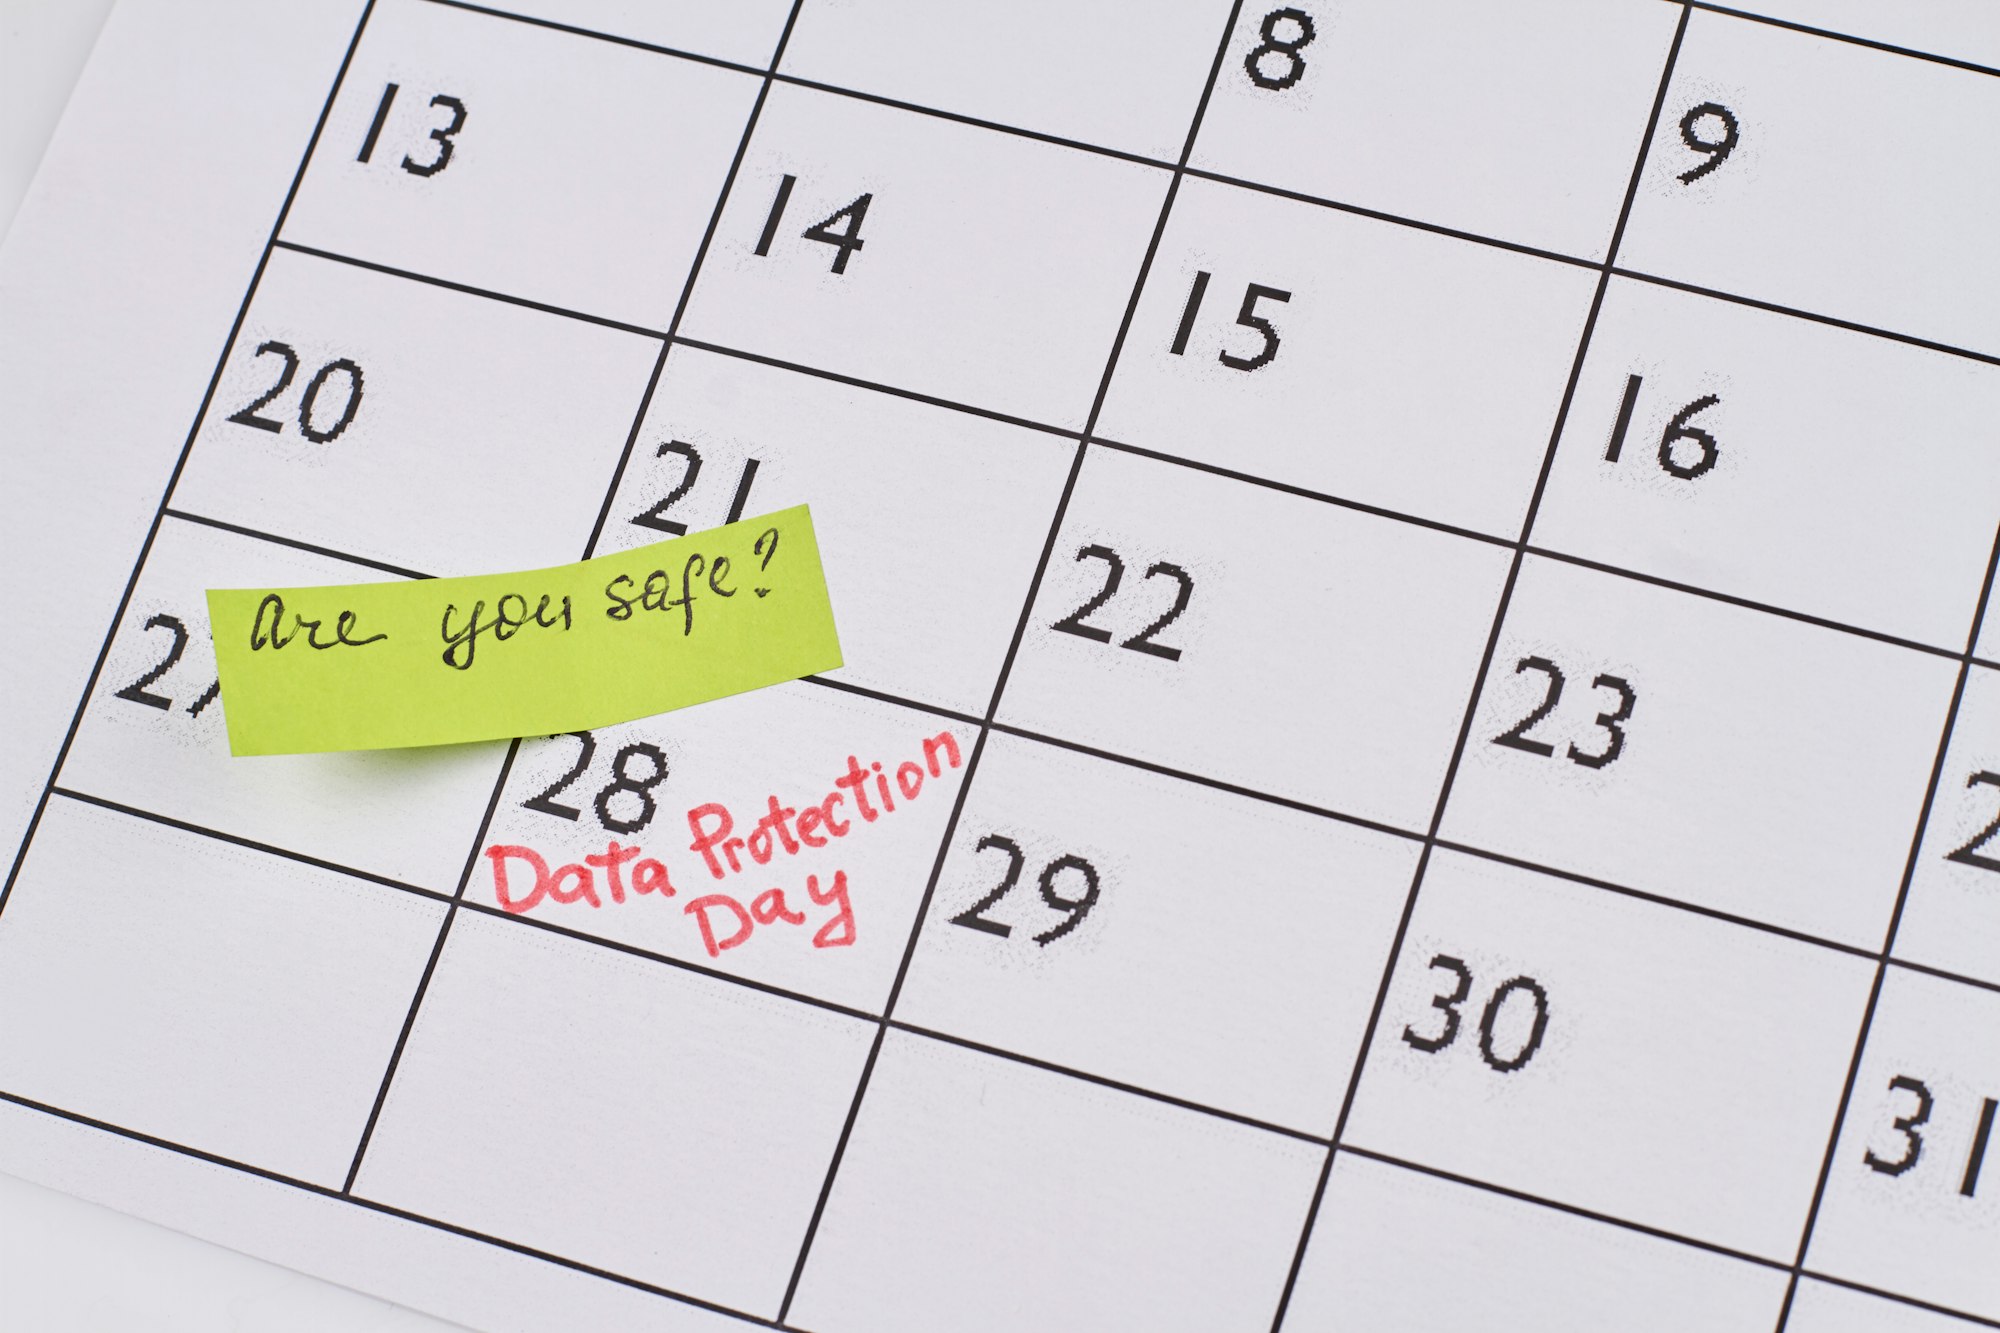 8 9
13 14 15 16
20 21 22 23
Are you safe?
27 28 29 30 31
Data Protection
Day